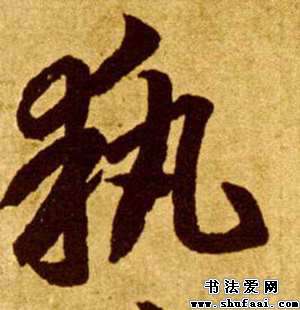 執
书法爱网
www.shufaai.com